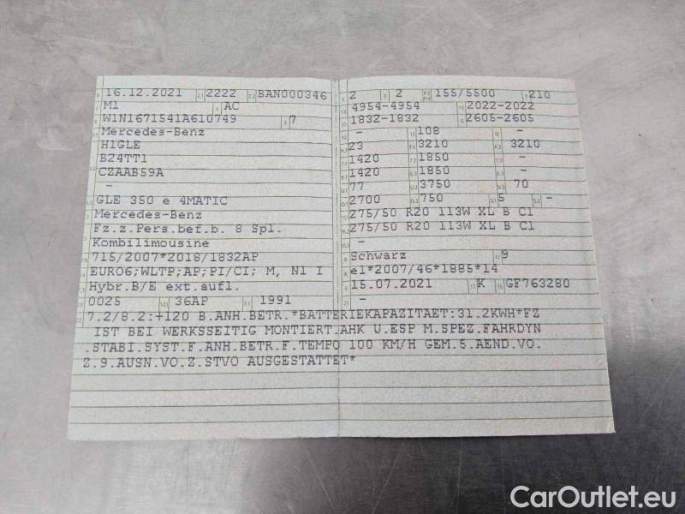 16.12.2021 2222 BAN000346
M1 AC
W1N1671541A610749 7
Mercedes-Benz
H1GLE
B24TT1
CZAAB59A
-
GLE 350 e 4MATIC
Mercedes-Benz
Fz.z.Pers.bef.b. 8 Spl.
Kombilimousine
715/2007*2018/1832AP
EURO6;WLTP;AP;PI/CI; M, N1 I
Hybr.B/E ext.aufl.
0025 36AP 1991
2 2 155/5500 210
4954-4954 2022-2022
1832-1832 2605-2605
- 108 -
23 3210 3210
1420 1850 -
1420 1850 -
77 3750 70
2700 750 5 -
275/50 R20 113W XL B C1
275/50 R20 113W XL B C1
-
Schwarz 9
e1*2007/46*1885*14
15.07.2021 K GF763280
-
7.2/8.2:+120 B.ANH.BETR.*BATTERIEKAPAZITAET:31.2KWH*FZ
IST BEI WERKSSEITIG MONTIERT.AHK U.ESP M.SPEZ.FAHRDYN
.STABI.SYST.F.ANH.BETR.F.TEMPO 100 KM/H GEM.5.AEND.VO.
Z.9.AUSN.VO.Z.STVO AUSGESTATTET*
CarOutlet.eu